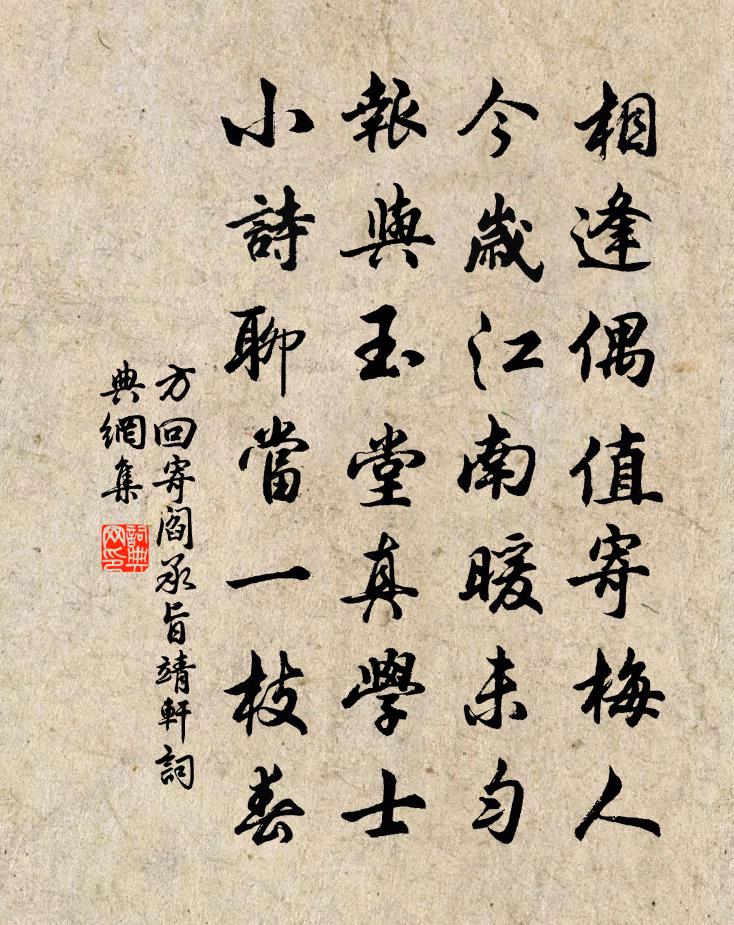 相逢偶值寄梅人
今歲江南暖未勻
報與玉堂真學士
小詩聊當一枝春
方回寄閻承旨靖軒詞
典網集
詞典
网印